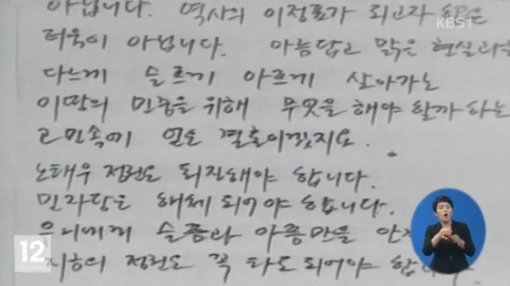 아닙니다. 역사의 이정표가 되고자 함은
더욱이 아닙니다. 아름답고 맑은 현실과는
다르게 슬프게 아프게 살아가는
이땅의 민중을 위해 무엇을 해야 할까 하는
고민속에 얻은 결론이겠지요.
노태우 정권은 퇴진해야 합니다.
민자당은 해체 되어야 합니다.
우리에게 슬픔과 아픔만을
지금의 정권은 꼭 타도 되어야 합니다.
KBS1
12